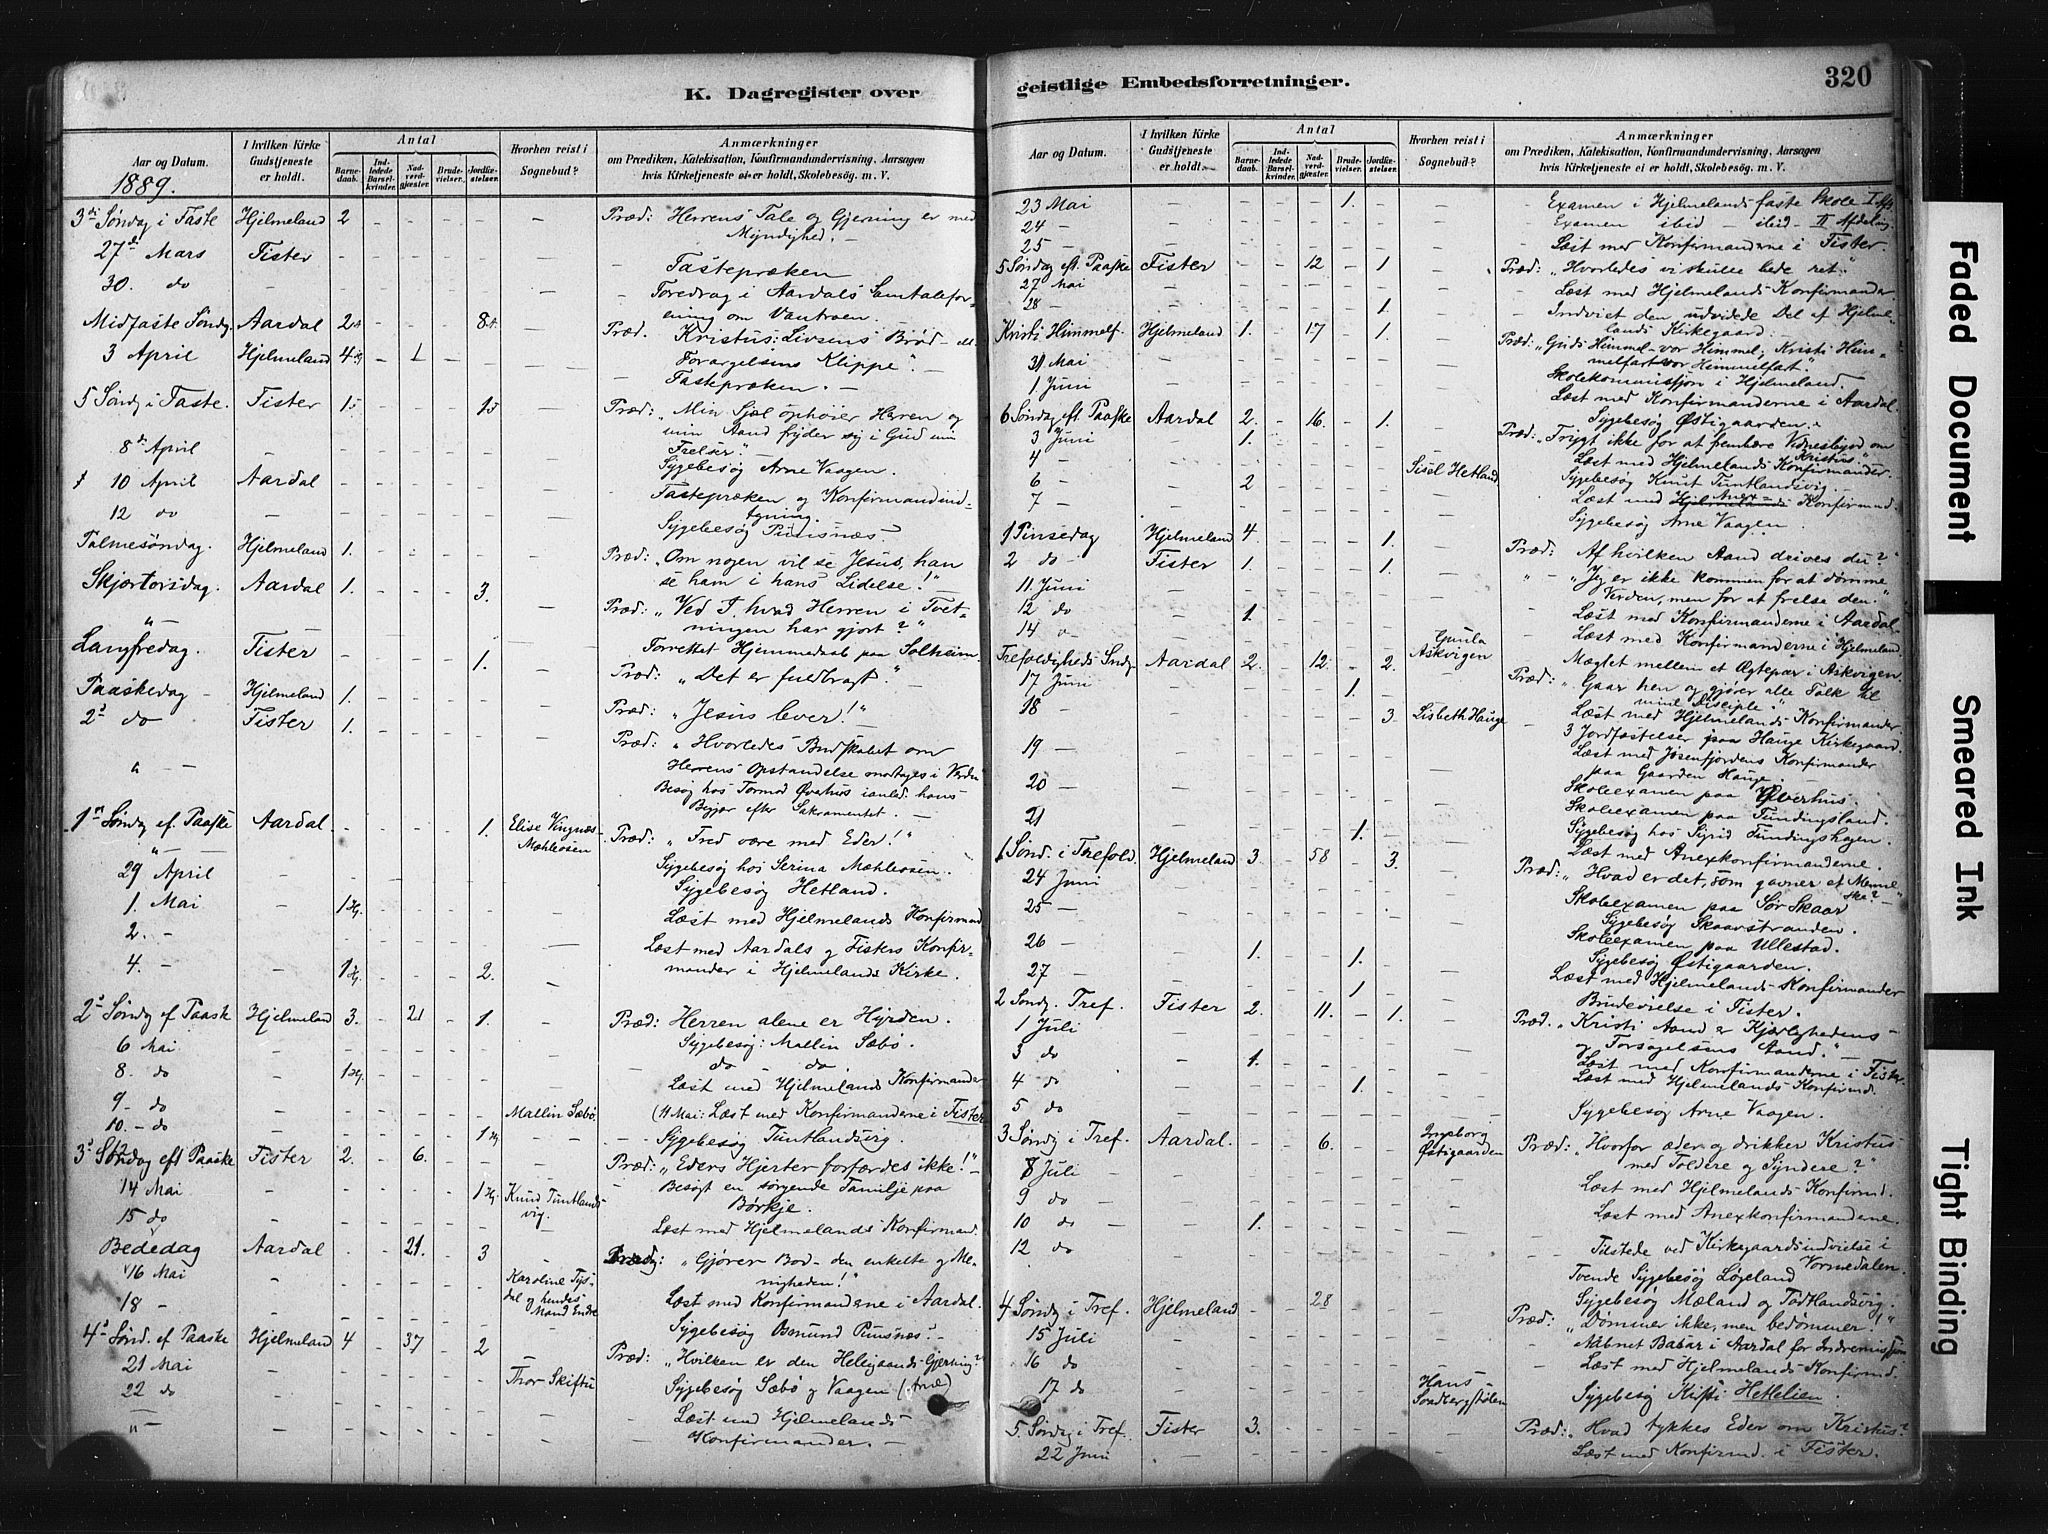 K. Dagregister over
Aar og Datum.
I hvilken Kirke Gudstjeneste er holdt.
Antal
Barnedaab.
Indledede Barselkvinder.
Nadverdgjæster.
Brudevielser.
Jordfæstelser.
Hvorhen reist i Sognebud?
Anmærkninger
om Prædiken, Katekisation, Konfirmandundervisning, Aarsagen
hvis Kirketjeneste ei er holdt, Skolebesøg. m. V.
1889.
3die Søndag i Faste Hjelmeland 2 - - - - - Præd: Herrens Tale og Gjerning er med
Myndighed. -
27de Mars Fister - Fastepræken
30. do - Foredrag i Aardals Samtalefor-
ening om Vantroen.
Midfaste Søndg. Aardal 2 8 Præd. Kristus: Livsens Brød - det
Forargelsens Klippe". -
3 April Hjelmeland 4 1 - Fastepræken. -
5 Søndg i Faste. Fister 1 1 Præd: "Min Sjæl ophøier Herren og
min Aand fryder sig i Gud min
Frelser".
8de April - Sygebesøg Arne Vaagen.
10 April Aardal Fastepræken og Konfirmandind-
tegning.
12 do Sygebesøg
Palmesøndag. Hjelmeland 1. Præd: "Om nogen vil se Jesus, han
se ham i hans Lidelse!" -
Skjærtorsdag. Aardal 1. 3. Præd: "Ved I, hvad Herren i Tvet-
ningen har gjort?"
" - Forrettet Hjemmedaab paa Solheim.
Langfredag. Fister - 1. Præd: "Det er fuldbragt."
Paaskedag - Hjelmeland 1. Præd: "Jesus lever!"
2den do Fister 1. Præd: "Hvorledes Budskabet om
Herrens Opstandelse modtages i Verden"
" - Besøg hos Tormod Øverhus ianled. hans
Begjær efter Sakramentet. -
1ste Søndg ef. Paaske Aardal 1. Elise Vingnæs Præd: "Fred være med Eder!"
" - Mæhleosen Sygebesøg hos Serina Mæhleosen.
29 April Sygebesøg Hetland.
1. Mai 1 Hj. Læst med Hjelmelands Konfirmand
2. - Læst med Aardals og Fisters Konfir-
mander i Hjelmelands Kirke.
4. - 1 Hj. 2.
2den Søndg ef Paask Hjelmeland 3. - 21 - 1. Præd: Herren alene er Hyrden.
6 Mai Sygebesøg: Mallin Sæbø.
8. do 1 Hj. do - do.
9 - do Læst med Hjelmelands Konfirmander
10. - do Mallin Sæbø (11 Mai: Læst med Konfirmanderne i Fister
12 1 Hj. Sygebesøg Tuntlandsvig.
3die Søndag eft Paaske Fister 2. - 6. Præd: "Eders Hjerter forfærdes ikke!" -
14 Mai 1 Hj. Knud Tuntlands- Besøgt en sørgende Familje paa
vig. Børkje.
15 do Læst med Hjelmelands Konfirmand.
Bededag Aardal 21. 3 Præd: "Gjører Bod - den enkelte og Me-
nigheden!"
16 Mai Karoline Tys- Læst med Konfirmanderne i Aardal.
18 - dal og hendes Mand Endre Sygebesøg
4de Sønd. ef Paaske Hjelmeland 4 37 2 Præd: "Hvilken er den Heligaands Gjerning?"
21 Mai Thor Skiftu Sygebesøg Sæbø og Vaagen (Arne)
22 do Læst med Hjelmelands
" - Konfirmander. -
geistlige Embedsforretninger.
320
Aar og Datum.
I hvilken Kirke Gudstjeneste er holdt.
Antal
Barnedaab.
Indledede Barselkvinder.
Nadverdgjæster.
Brudevielser.
Jordfæstelser.
Hvorhen reist i Sognebud?
Anmærkninger
om Prædiken, Katekisation, Konfirmandundervisning, Aarsagen
hvis Kirketjeneste ei er holdt, Skolebesøg. m. V.
23 Mai 1. Examen i Hjelmelands faste Skole I Afd.
24 - Examen ibid - ibid - II Afdeling.
25 - Læst med Konfirmanderne i Fister.
5 Søndag eft. Paaske Fister 12 1 Præd: "Hvorledes vi skulle bede ret."
27 Mai Læst med Hjelmelands Konfirmander.
28 - 1. Indviet den udvidede Del af Hjelme-
lands Kirkegaard.
Kristi Himmelf. Hjelmeland 1. 17 1. Præd: "Guds Himmel - vor Himmel; Kristi Him-
melfart vor Himmelfart.
31 Mai Skolekommissjon i Hjelmeland.
1 Juni Læst med Konfirmanderne i Aardal.
Sygebesøg Østigaarden.
6 Søndag eft Paaske Aardal 2. 16. 1. Præd: "Frygt ikke for at frembære Vidnesbyrd om
Kristus"
3 Juni 1. Læst med Hjelmelands Konfirmander.
4 - Sisel Hetland Sygebesøg Knut Tuntlandsvig.
6 - 2 Læst med Anex- Konfirmand.
7 - Sygebesøg Arne Vaagen.
1 Pinsedag Hjelmeland 4. 1. Præd: "Af hvilken Aand drives du?"
2 do Fister 1. 1. " - "Jeg er ikke kommen for at dømme
Verden, men for at frelse den."
11 Juni Læst med Konfirmanderne i Aardal.
12 do 1. Læst med Konfirmanderne i Hjelmeland.
14 - Gunla Askvigen Mæglet mellem et Ægtepar i Askvigen.
Trefoldigheds Sndg Aardal 2. 12. 2. Præd: "Gaar hen og gjører alle Folk til
mine Disciple."
17 Juni 1. Læst med Hjelmelands Konfirmander
18 - 3. Lisbeth Hauge 3 Jordfæstelser paa Hauge Kirkegaard.
Læst med Jøsenfjordens Konfirmander
paa Gaarden Hauge.
19 - Skoleexamen paa Øverhus.
20 - Skoleexamen paa Fundingsland.
21 1. Sygebesøg hos Sigrid Fundingshagen.
Læst med Anexkonfirmanderne.
1 Sønd. i Trefold. Hjelmeland 3. 58 3. Præd: "Hvad er det, som gavner et Menne-
ske?" -
24 Juni Skoleexamen paa Sør Skaar
25 - Sygebesøg Skaarstranden.
Skoleexamen paa Ullestad.
26 - 1. 1. Sygebesøg Østigaarden.
27 - 1 Læst med Hjelmelands Konfirmander
Brudevielse i Fister.
2 Søndg. Tref. Fister 2. 11. 1. Præd. "Kristi Aand er Kjærlighedens
og Forsagelsens Aand." -
1 Juli Læst med Konfirmanderne i Fister.
3 do 1. Læst med Hjelmelands Konfirmd.
4 do 1.
5 do Sygebesøg Arne Vaagen.
3 Søndg i Tref. Aardal. 6. Ingeborg Østigaarden Præd: "Hvorfor æder og drikker Kristus
med Toldere og Syndere?"
8 Juli Læst med Hjelmelands Konfirmd.
9 do Læst med Anexkonfirmanderne.
10 do 1.
12 do Tilstede ved Kirkegaardsindvielse i
Vormedalen.
Tvende Sygebesøg Løgeland
Sygebesøg Mæland og Tødtlandsvig.
4 Søndg i Tref. Hjelmeland 28 Præd: "Dømmer ikke, men bedømmer!"
15 Juli Aabnet Basar i Aardal for Indremissjon
16 do Læst med Hjelmelands Konfirmd.
17 do Hans Sandbergstølen Sygebesøg Kisti Hetlelien.
5. Søndg i Tref. Fister 3. Præd: "Hvad tykkes Eder om Kristus?
22 Juni Læst med Konfirmd. i Fister.
Faded Document
Smeared Ink
Tight Binding